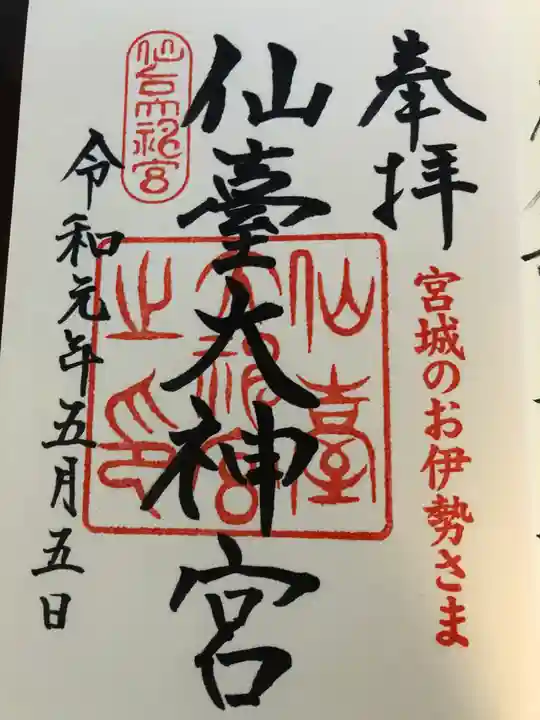 奉拝
宮城のお伊勢さま
仙臺大神宮
仙臺
大神宮
之印
仙台大神宮
令和元年五月五日